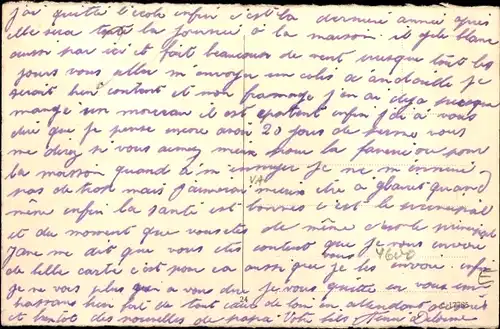 j'ai quitté l'école enfin c'est la dernière année après
elle sera toute la journée à la maison. il gèle blanc
aussi par ici et fait beaucoup de vent presque tout les
jours vous allez m'envoyer un colis a andouille je
serait bien contant et mon fromage j'en ai déjà presque
mangé un morceau il est épatant enfin j'ai à vous
dire que je pense encore avoir 20 jours de ferme vous
me direz si vous aimez mieux pour la ou pour
la maison quand à m'ennuyer je ne m'ennuie
pas de trop mais j'aimerai mieux être a quand
même enfin la santé est bonnes c'est le principal
et du moment que vous êtes de même c'est le principal
Jane me dit que vous êtes contant que je vous envoie
vous 4600
de belle carte c'est pour ça aussi que je les envoie enfin
je ne vois plus que a vous dire je vous quitte en vous
24
bien fort de tout cœur de loin en attendant
et bientôt des nouvelles de papa Votre fils